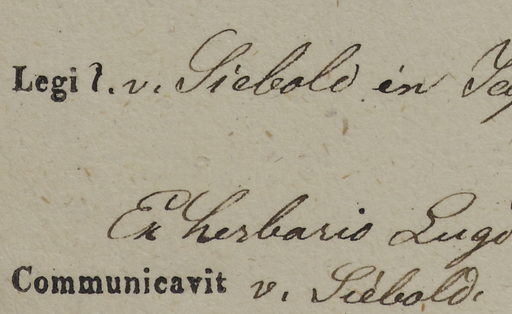 Legi l. v. Siebold in Jap
Ex herbario Lugd
Communicavit v. Siebold.